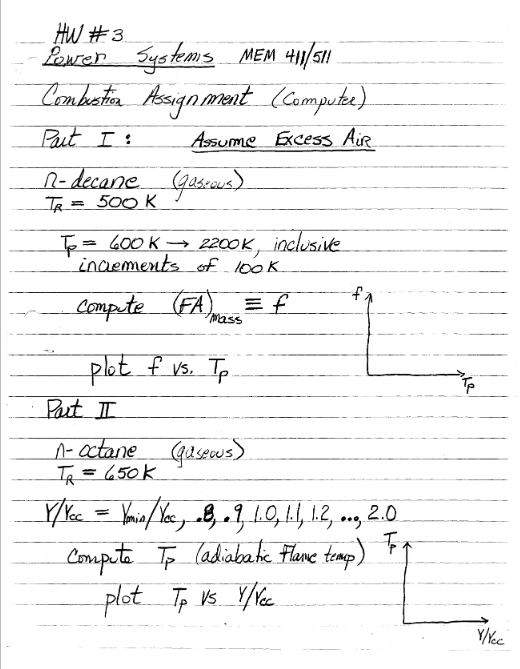 HW #3
Power Systems MEM 411/511
Combustion Assignment (Computer)
Part I: Assume Excess Air
n-decane (gaseous)
TR = 500 K
Tp = 600 K → 2200K, inclusive
increments of 100K
compute (FA)mass ≡ f
f
plot f vs. Tp
Tp
Part II
n-octane (gaseous)
TR = 650 K
Y/Ycc = Ymin/Ycc, .8, .9, 1.0, 1.1, 1.2, ..., 2.0
Compute Tp (adiabatic Flame temp)
Tp
plot Tp vs Y/Ycc
Y/Ycc